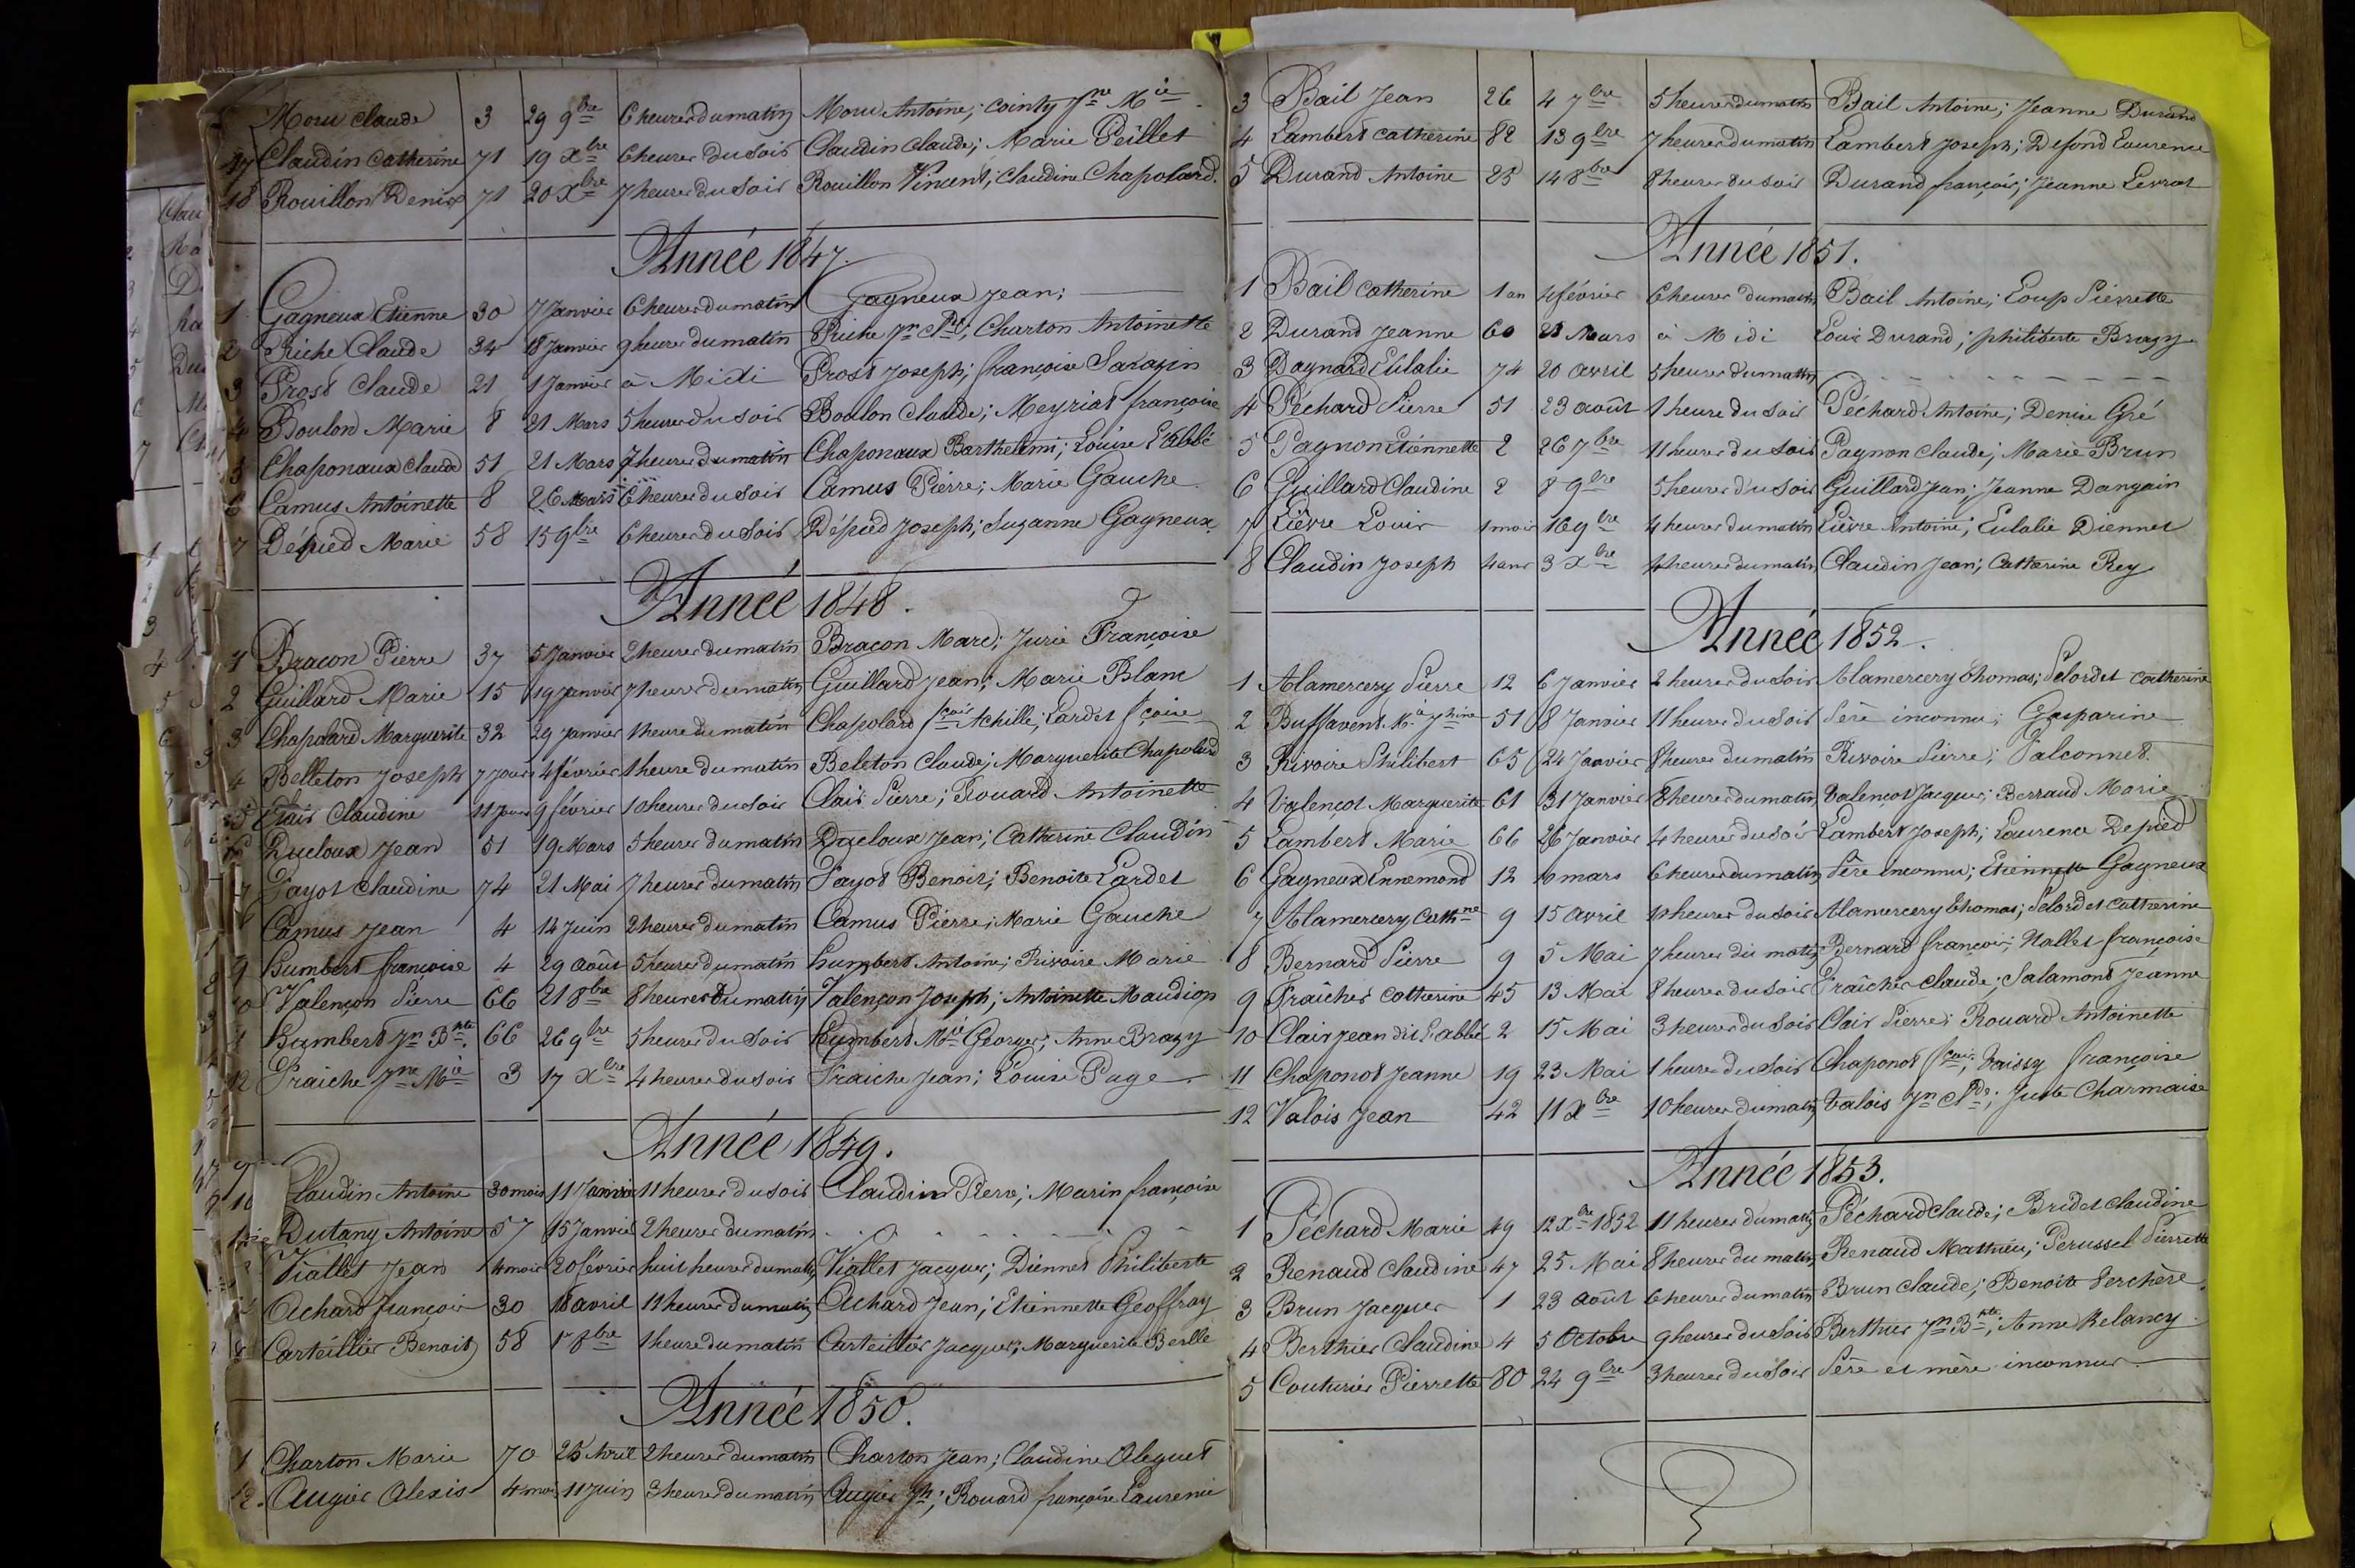 Claude 3 29 9bre 6 heures du matin Antoine; Jne Mie
17 Claudin Catherine 71 19 Xbre 6 heures du soir Claudin Claude; Marie Peillet
18 Rouillon Denis 71 20 Xbre 7 heures du soir Rouillon Vincent; Claudine Chapolard.
Année 1847.
1 Gagneux Etienne 30 7 Janvier 6 heures du matin Gagneux Jean;
2 Riche Claude 34 18 Janvier 9 heures du matin Riche Jn Cde; Charton Antoinette
3 Prost Claude 21 1 Janvier à Midi Prost Joseph; françoise Sarazin
4 Boulon Marie 8 21 Mars 5 heures du soir Boulon Claude; Meyriat françoise
5 Chaponaux Claude 51 21 Mars 7 heures du matin Chaponaux Barthelemi; Louise L'Abbé
6 Camus Antoinette 8 26 Mars 6 heures du soir Camus Pierre; Marie Gauche
7 Dépied Marie 58 15 9bre 6 heures du soir Dépied Joseph; Suzanne Gagneux
Année 1848.
1 Bracon Pierre 37 5 Janvier 2 heures du matin Bracon Marc; Jurie Françoise
2 Guillard Marie 15 19 Janvier 7 heures du matin Guillard Jean; Marie Blanc
3 Chapolard Marguerite 32 29 Janvier 1 heure du matin Chapolard fcois Achille; Lardet fçoise
4 Belleton Joseph 7 jours 4 février 1 heure du matin Beleton Claude; Marguerite Chapolard
5 Clair Claudine 11 jours 9 février 10 heures du soir Clair Pierre; Rouard Antoinette
6 Ducloux Jean 51 19 Mars 5 heures du matin Ducloux Jean; Catherine Claudin
7 Fayot Claudine 74 21 Mai 7 heures du matin Fayot Benoit; Benoite Lardet
8 Camus Jean 4 14 Juin 2 heures du matin Camus Pierre; Marie Gauche
9 humbert françoise 4 29 août 5 heures du matin humbert Antoine; Rivoire Marie
10 Valençon Pierre 66 21 8bre 8 heures du matin Valençon Joseph; Antoinette Maudion
11 Humbert Jn Bte. 66 26 9bre 5 heures du soir Humbert Mie Georges; Anne Brazy
12 Fraiche Jne Mie 3 17 Xbre 4 heures du soir Fraiche Jean; Louise Page
Année 1849.
Claudin Antoine 30 mois 11 Janvier 11 heures du soir Claudin Pierre; Marin françoise
Dutany Antoine 57 15 Janvier 2 heures du matin
Viallet Jean 4 mois 20 février huit heures du matin Viallet Jacques; Diennet Philiberte
Achard françois 30 18 avril 11 heures du matin Achard Jean; Etiennette Geoffray
Carteillier Benoit 58 1r 8bre 1 heure du matin Carteillier Jacques; Marguerite Berlle
Année 1850.
1 Charton Marie 70 25 Avril 2 heures du matin Charton Jean; Claudine Aleguet
2. Augier Alexis 4 mois 11 Juin 3 heures du matin Augier Ph; Rouard françoise Laurence
3 Bail Jean 26 4 7bre 5 heures du matin Bail Antoine; Jeanne Durand
4 Lambert Catherine 82 13 9bre 7 heures du matin Lambert Joseph; Defond Laurence
5 Durand Antoine 25 14 8bre 8 heures du soir Durand françois; Jeanne Levrat
Année 1851.
1 Bail Catherine 1 an 4 février 6 heures du matin Bail Antoine; Loup Pierrette
2 Durand Jeanne 60 Mars à Midi Louis Durand; philiberte Brazy
3 Daynard Eulalie 74 20 avril 5 heures du matin
4 Péchard Pierre 51 23 août 1 heure du soir Péchard Antoine; Denise Gré
5 Pagnon Etiennette 2 26 7bre 11 heures du soir Pagnon Claude; Marie Brun
6 Guillard Claudine 2 8 9bre 5 heures du soir Guillard Jean; Jeanne Dangain
7 Lièvre Louis 1 mois 16 9bre 4 heures du matin Lièvre Antoine; Eulalie Diennet
8 Claudin Joseph 4 ans 3 Xbre 4 heures du matin Claudin Jean; Catherine Rey
Année 1852.
1 Alamercery Pierre 12 6 Janvier 2 heures du soir Alamercery Thomas; Pelordet Catherine
2 Buffavent 51 8 Janvier 11 heures du soir Père inconnu; Gasparine
3 Rivoire Philibert 65 24 Janvier 8 heures du matin Rivoire Pierre; Falconnet.
4 Valençot Marguerite 61 31 Janvier 8 heures du matin Valençot Jacques; Berraud Marie
5 Lambert Marie 66 26 Janvier 4 heures du soir Lambert Joseph; Laurence Depied
6 Gagneux Ennemond 12 10 mars 6 heures du matin Père inconnu; Etiennette Gagneux
7 Alamercery Cathne 9 15 avril 10 heures du soir Alamercery Thomas; Pelordet Catherine
8 Bernard Pierre 9 5 Mai 7 heures du matin Bernard françois; Nallet françoise
9 Fraîcher Catherine 45 13 Mai 8 heures du soir Fraîcher Claude; Salamont Jeanne
10 Clair Jean dit L'abbé 2 15 Mai 3 heures du soir Clair Pierre; Rouard Antoinette
11 Chaponot Jeanne 19 23 Mai 1 heure du soir Chaponot fcois; Vaissy françoise
12 Valois Jean 42 11 Xbre 10 heures du matin Valois Jn Cde; Juste Charmaise
Année 1853.
1 Péchard Marie 49 12 Xbre 1852 11 heures du matin Péchard Claude; Bridet Claudine
2 Renaud Claudine 47 25 Mai 8 heures du matin Renaud Mathieu; Perussel Pierrette
3 Brun Jacques 1 23 août 6 heures du matin Brun Claude; Benoite Perchère
4 Berthier Claudine 4 5 Octobre 9 heures du soir Berthier Jn Bte; Anne Relancy
5 Couturier Pierrette 80 24 9bre 3 heures du soir Père et mère inconnus.